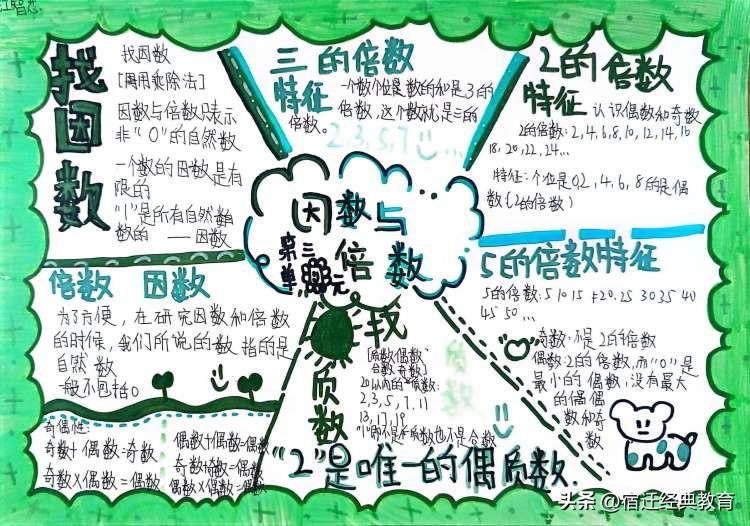 找因数
找因数
[用乘除法]
因数与倍数只表示
非“0”的自然数
一个数的因数是有
限的
“1”是所有自然
数的——因数
三的倍数
特征
一个数个位是数的和是3的
倍数,这个数就是三的
倍数。
2,3,5,7
2的倍数
特征
认识偶数和奇数
2的倍数:2,4,6,8,10,12,14,16
18,20,22,24...
特征:个位是0,2,4,6,8的是偶
数(2的倍数)
因数与
倍数
第三
单元
倍数 因数
为了方便,在研究因数和倍数
的时候,我们所说的数指的是
自然数
一般不包括0
奇偶性:
奇数+偶数=奇数
奇数×偶数=偶数
偶数+偶数=偶数
奇数+奇数=偶数
偶数×偶数=偶数
找
质数
质数
20以内的质数:
2,3,5,7,11
13,17,19
“1”即不是质数也不是合数
“2”是唯一的偶质数
5的倍数特征
5的倍数:5 10 15 20.25 30 35 40
45 50...
奇数:不是2的倍数
偶数:2的倍数,而“0”是
最小的偶数,没有最大
的偶
数和奇
数
头条@宿迁经典教育